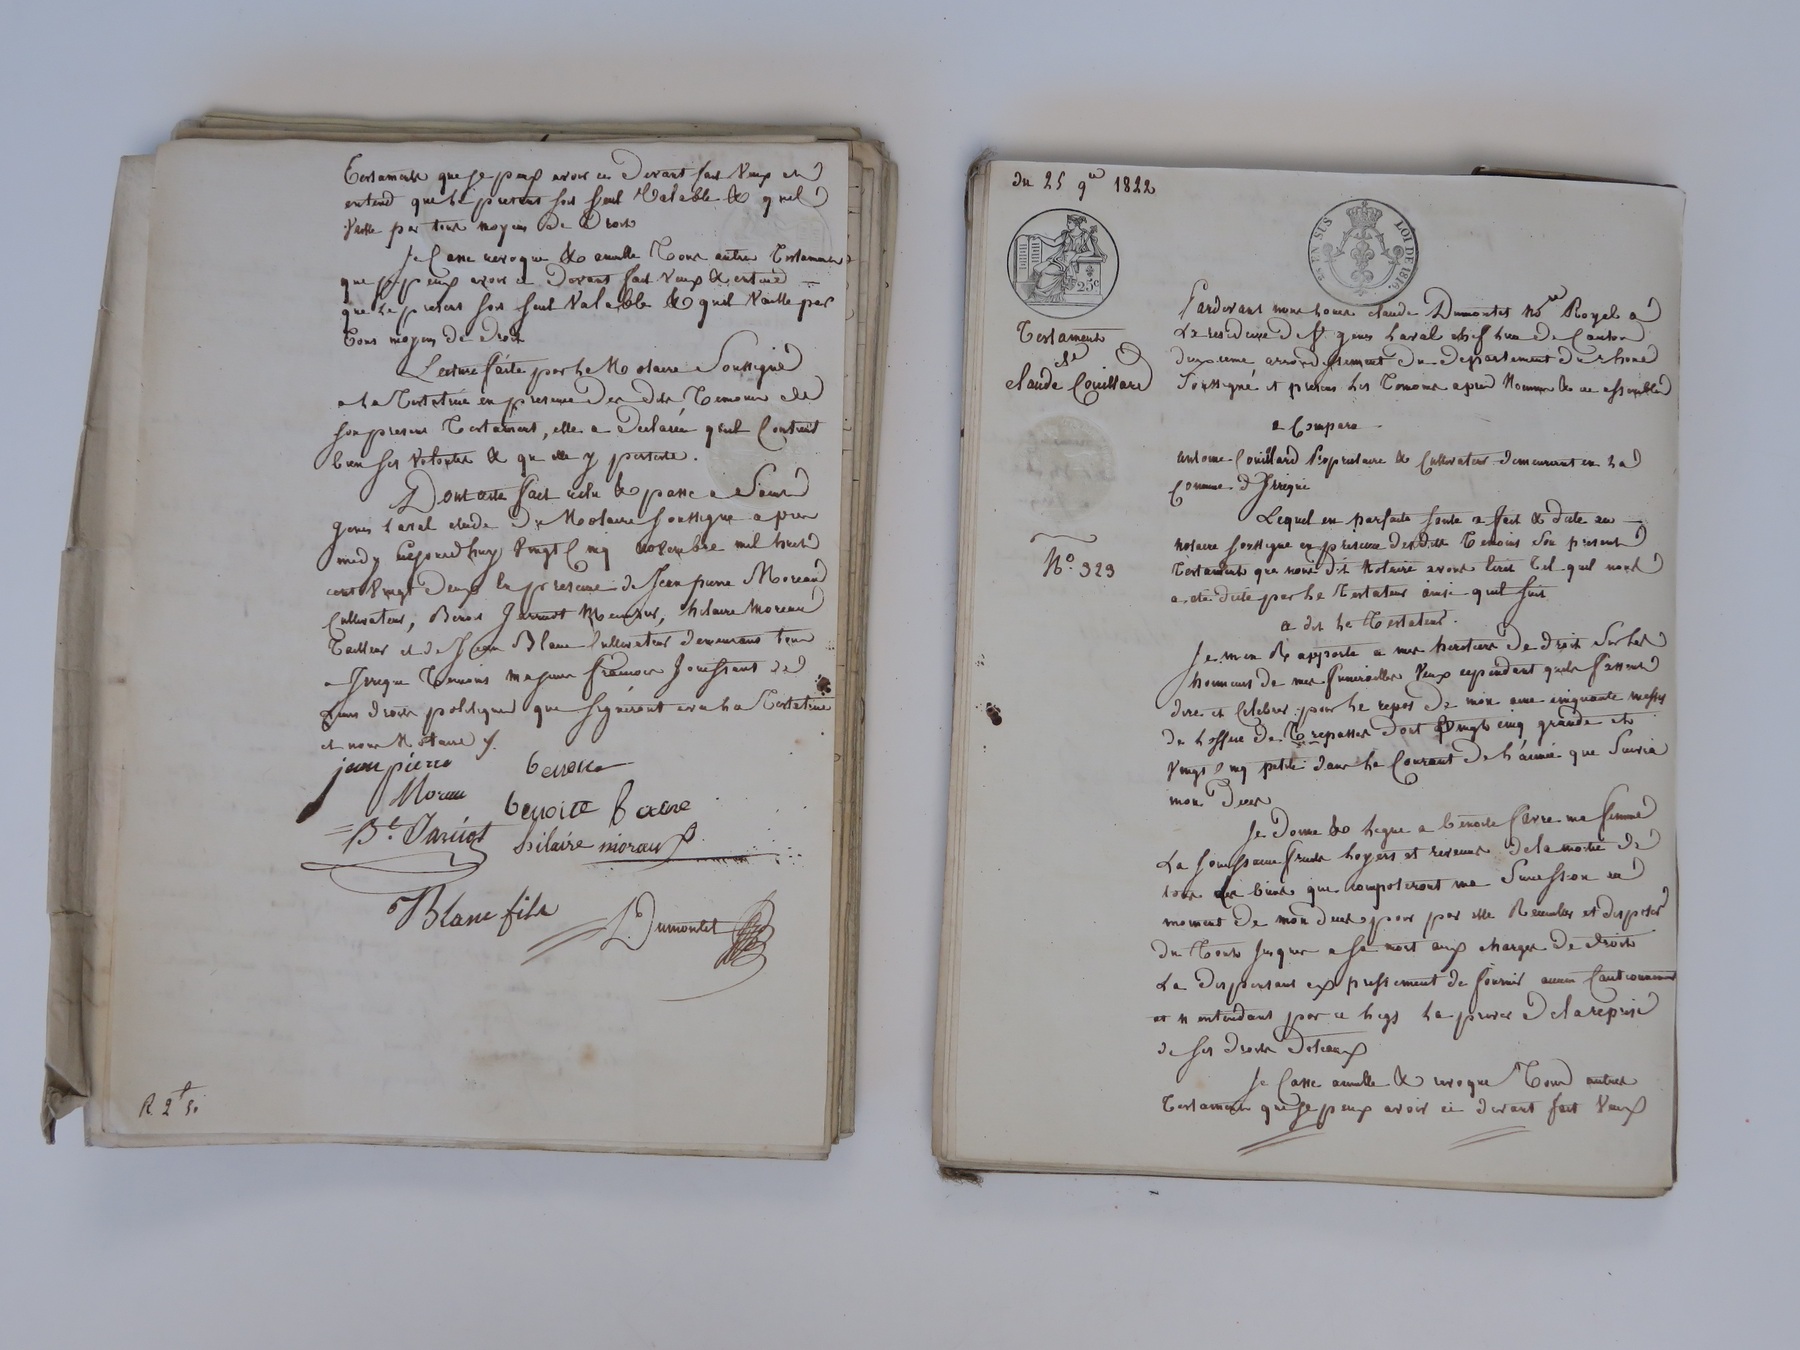 Testaments que je peux avoir ci devant fait veux et
entend que le present soit seul valable & quil
vaille par tous moyens de droit
Je Casse revoque & annulle Tous autres Testaments
que je peux avoir ci devant fait veux & entend
que le present soit seul valable & quil vaille par
Tous moyens de droit
Lecture faite par le Notaire Soussigné
a la Testatrice en presence des dits Temoins de
son present Testament, elle a declarée quil Contient
bien ses volontés & qu elle y persiste.
Dont acte fait relu & passé a Saint
genis Laval etude du Notaire soussigné apres
midy aujourdhuy vingt cinq novembre mil huit
cent vingt deux en presence de Jean pierre Moreau
Cultivateur, Benoit Jarricot Menuisier, hilaire Moreau
Tailleur et de Jean Blanc Cultivateur demeurans tous
a Irigny Temoins majeurs francois Jouissant de
Leurs droits politiques que signeront avec la Testatrice
et nous Notaire
jean pierre
Moreau
benoite favre
Bt Jaricot
hilaire moraux
Blanc fils
Dumontet
R 2f 50
du 25 9re 1822
EN SUS
LOI DE 1816.
25c
Testament
de
Claude Couillard
No. 323
Pardevant nous Louis claude Dumontet Nore Royal a
La residence de St genis Laval chef lieu de Canton
deuxieme arrondissement du departement du rhone
Soussigné et presens les Temoins apres Nommés & ce assemblés
a Comparu
antoine Couillard Proprietaire & Cultivateur demeurant en la
Commune d'Irigni
Lequel en parfaite santé a fait & dicté au
notaire soussigné en presence des dits Temoins son present
Testament que nous dit Notaire avons écrit Tel quil nous
a été dicté par le Testateur ainsi quil suit
a dit le Testateur.
Je m'en Rapporte a mes heritiers de droit sur les
honneurs de mes funerailles veux cependant quils fassent
dire et Celebrer pour le repos de mon ame cinquante messes
de l'office des Trepassés dont vingt cinq grandes et
vingt cinq petites dans le Courant de l'année que Suivra
mon deces
Je Donne & legue a benoite favre ma femme
La jouissance fruits loyers et revenus de la moitié de
tous les biens que composeront ma Succession au
moment de mon deces, pour par elle Recueillir et disposer
du Tout jusques a sa mort aux charges de droit
La dispensant expressement de fournir aucun Cautionnement
et n entendant par ce legs la priver de la reprise
de ses droits dotaux
Je Casse annulle & revoque Tous autres
Testaments que je peux avoir ci devant fait Veux